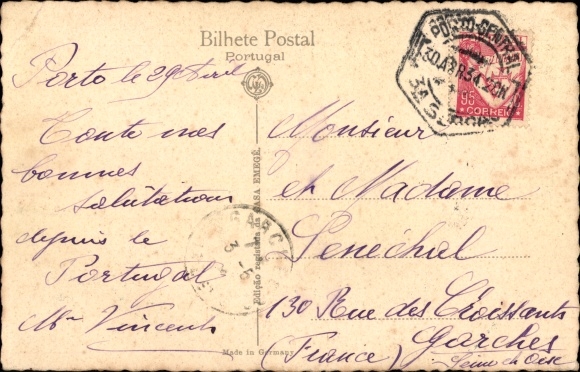 Bilhete Postal
Portugal
Porto le 29 Avril
Toute mes
bonnes
salutations
depuis le
Portugal
Mr Vincent
Edição registada da CASA EMEGÊ.
Made in Germany
Monsieur
et Madame
Senéchal
130 Rue des Croissants
Garches
(France)
Seine et Oise
PORTO-CENTRAL
30.ABR34.20H
95 C
CORREIO
GARCHES
3 -5